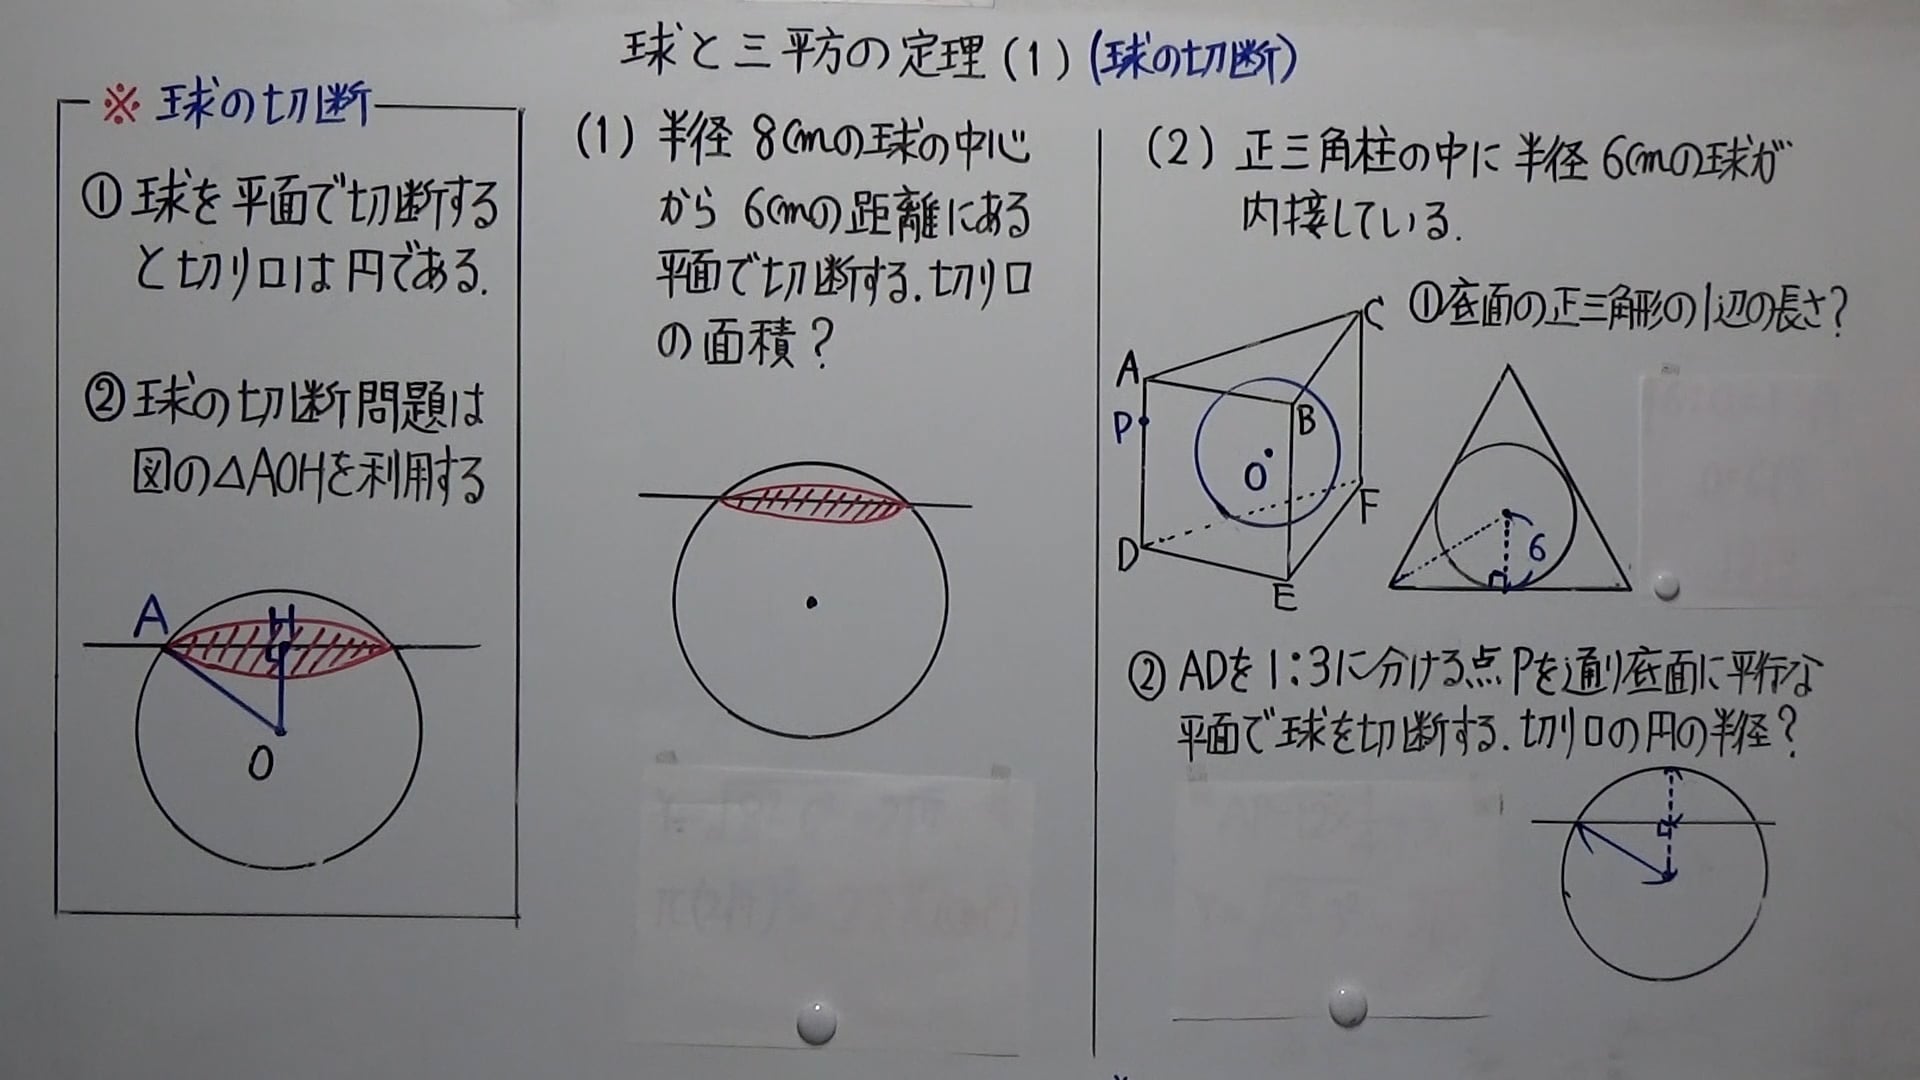 球と三平方の定理(1)(球の切断)
※ 球の切断
①球を平面で切断する
と切り口は円である.
②球の切断問題は
図の△AOHを利用する
A
H
O
(1) 半径 8cmの球の中心
から 6cmの距離にある
平面で切断する.切り口
の面積?
(2) 正三角柱の中に半径 6cmの球が
内接している.
①底面の正三角形の1辺の長さ?
A
P
B
C
O
D
E
F
6
② ADを1:3に分ける点Pを通り底面に平行な
平面で球を切断する.切り口の円の半径?